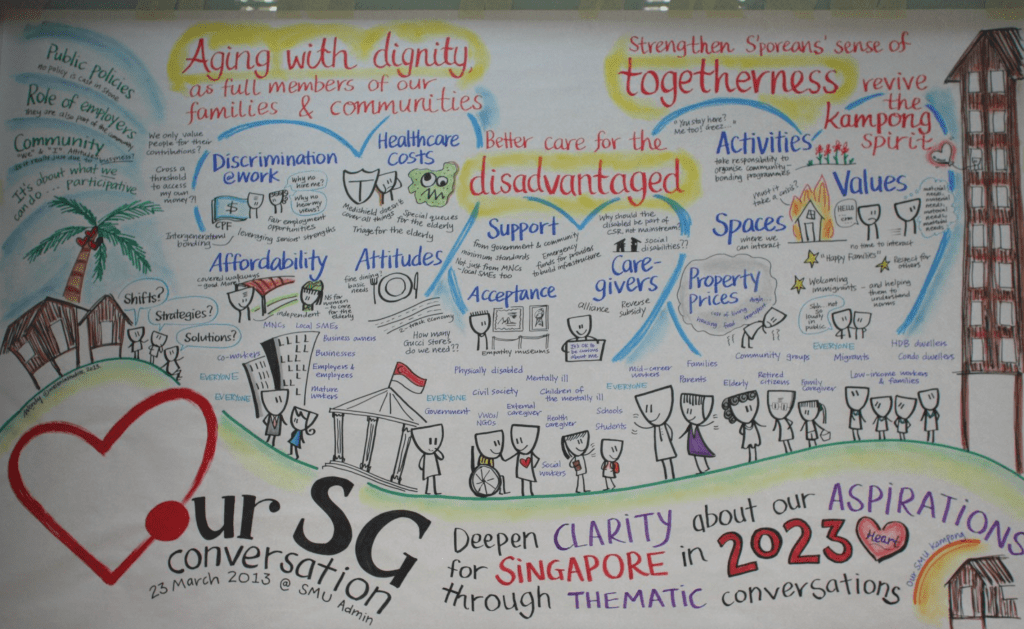 Public policies
no policy is cast in stone
Role of employers
they are also part of the community
Community
It's about what we
can do... participative
Aging with dignity,
as full members of our
families & communities
We only value
people for their
contributions?
Cross a
threshold
to access
my own
money?!
Discrimination
@work
Why no
hire me?
Why no
hire my
value?
$
CPF
Fair employment
opportunities
Intergenerational
bonding
leveraging senior strengths
Healthcare
costs
Medishield doesn't
cover all things
Special queues
for the elderly
Triage for the elderly
Affordability
covered walkways
- good move
NS for
women
to care for
the elderly
independent
Attitudes
fine dining?
basic
needs
How many
Gucci stores
do we need??
Better care for the
disadvantaged
Support
from government & community
minimum standards
Not just from MNCs
- local SMEs too
Emergency
funds for providers
to build infrastructure
Why should the
disabled be part of
CSR, not mainstream?
social
disabilities??
Acceptance
empathy museums
Care-
givers
Alliance
Reverse
subsidy
Strengthen S'poreans' sense of
togetherness
revive
the
kampong
Spirit
"You stay here?
Me too! Greez..."
Activities
take responsibility to
organise community-
bonding programmes
Spaces
where we
can interact
Values
no time to interact
"Happy Families"
Respect for
others
Welcoming
immigrants
- and helping
them to
understand
norms
Property
prices
Cost of living
Shh.. not
so loudly
in
public
Shifts?
Strategies?
Solutions?
MNCs
Local SMEs
Business owners
Businesses
Employers &
employees
Mature
workers
Co-workers
EVERYONE
EVERYONE
EVERYONE
Government
Physically disabled
Mentally ill
Civil society
Children of
the mentally ill
VWOs/
NGOs
External
caregiver
Health
caregiver
Social
workers
EVERYONE
Schools
Students
Mid-career
workers
Families
Parents
Community groups
Elderly
Retired
citizens
Family
caregiver
EVERYONE
Migrants
HDB dwellers
Condo dwellers
Low-income workers
& families
Our SG
conversation
23 March 2013 @ SMU Admin
Deepen CLARITY about our ASPIRATIONS
for SiNGAPORE in 2023 Heart
through THEMATIC conversations
Our SMU Kampong